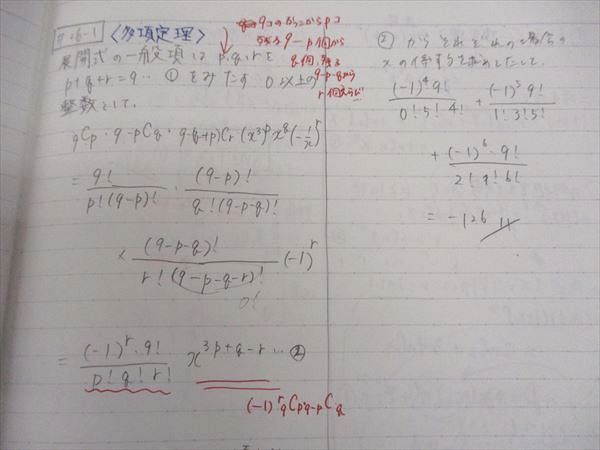 #26-1
〈多項定理〉
展開式の一般項は p, q, r を
p+q+r=9 … ① をみたす 0以上の
整数として、
9Cp・9-pCq・9-(q+p)Cr (x³)^p x^q (-1/x)^r
= 9!/p!(9-p)! ・ (9-p)!/q!(9-p-q)!
× (9-p-q)!/r!(9-p-q-r)! (-1)^r
0!
= (-1)^r・9!/p!q!r! x^(3p+q-r) … ②
(-1)^r 9Cp 9-pCq
9コのかっこからpコ
9-p個から
q個,残る
9-p-qから
r個えらぶ
② からそれぞれの場合の
xの係数を求めたして、
(-1)^4 9!/0!5!4! + (-1)^5 9!/1!3!5!
+ (-1)^6・9!/2!1!6!
= -126